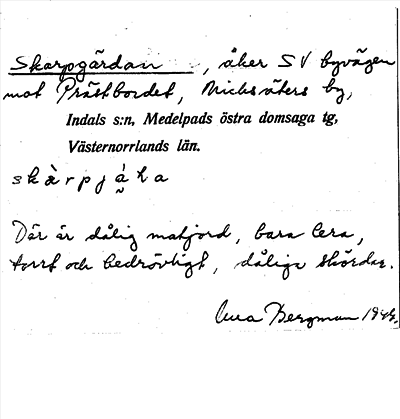 Skarpgärdan, åker SV byvägen
mot Prästbordet, Nicksäters by,
Indals s:n, Medelpads östra domsaga tg,
Västernorrlands län.
Där är dålig matjord, bara lera,
torrt och bedrövligt, dåliga skördar.
Bergman